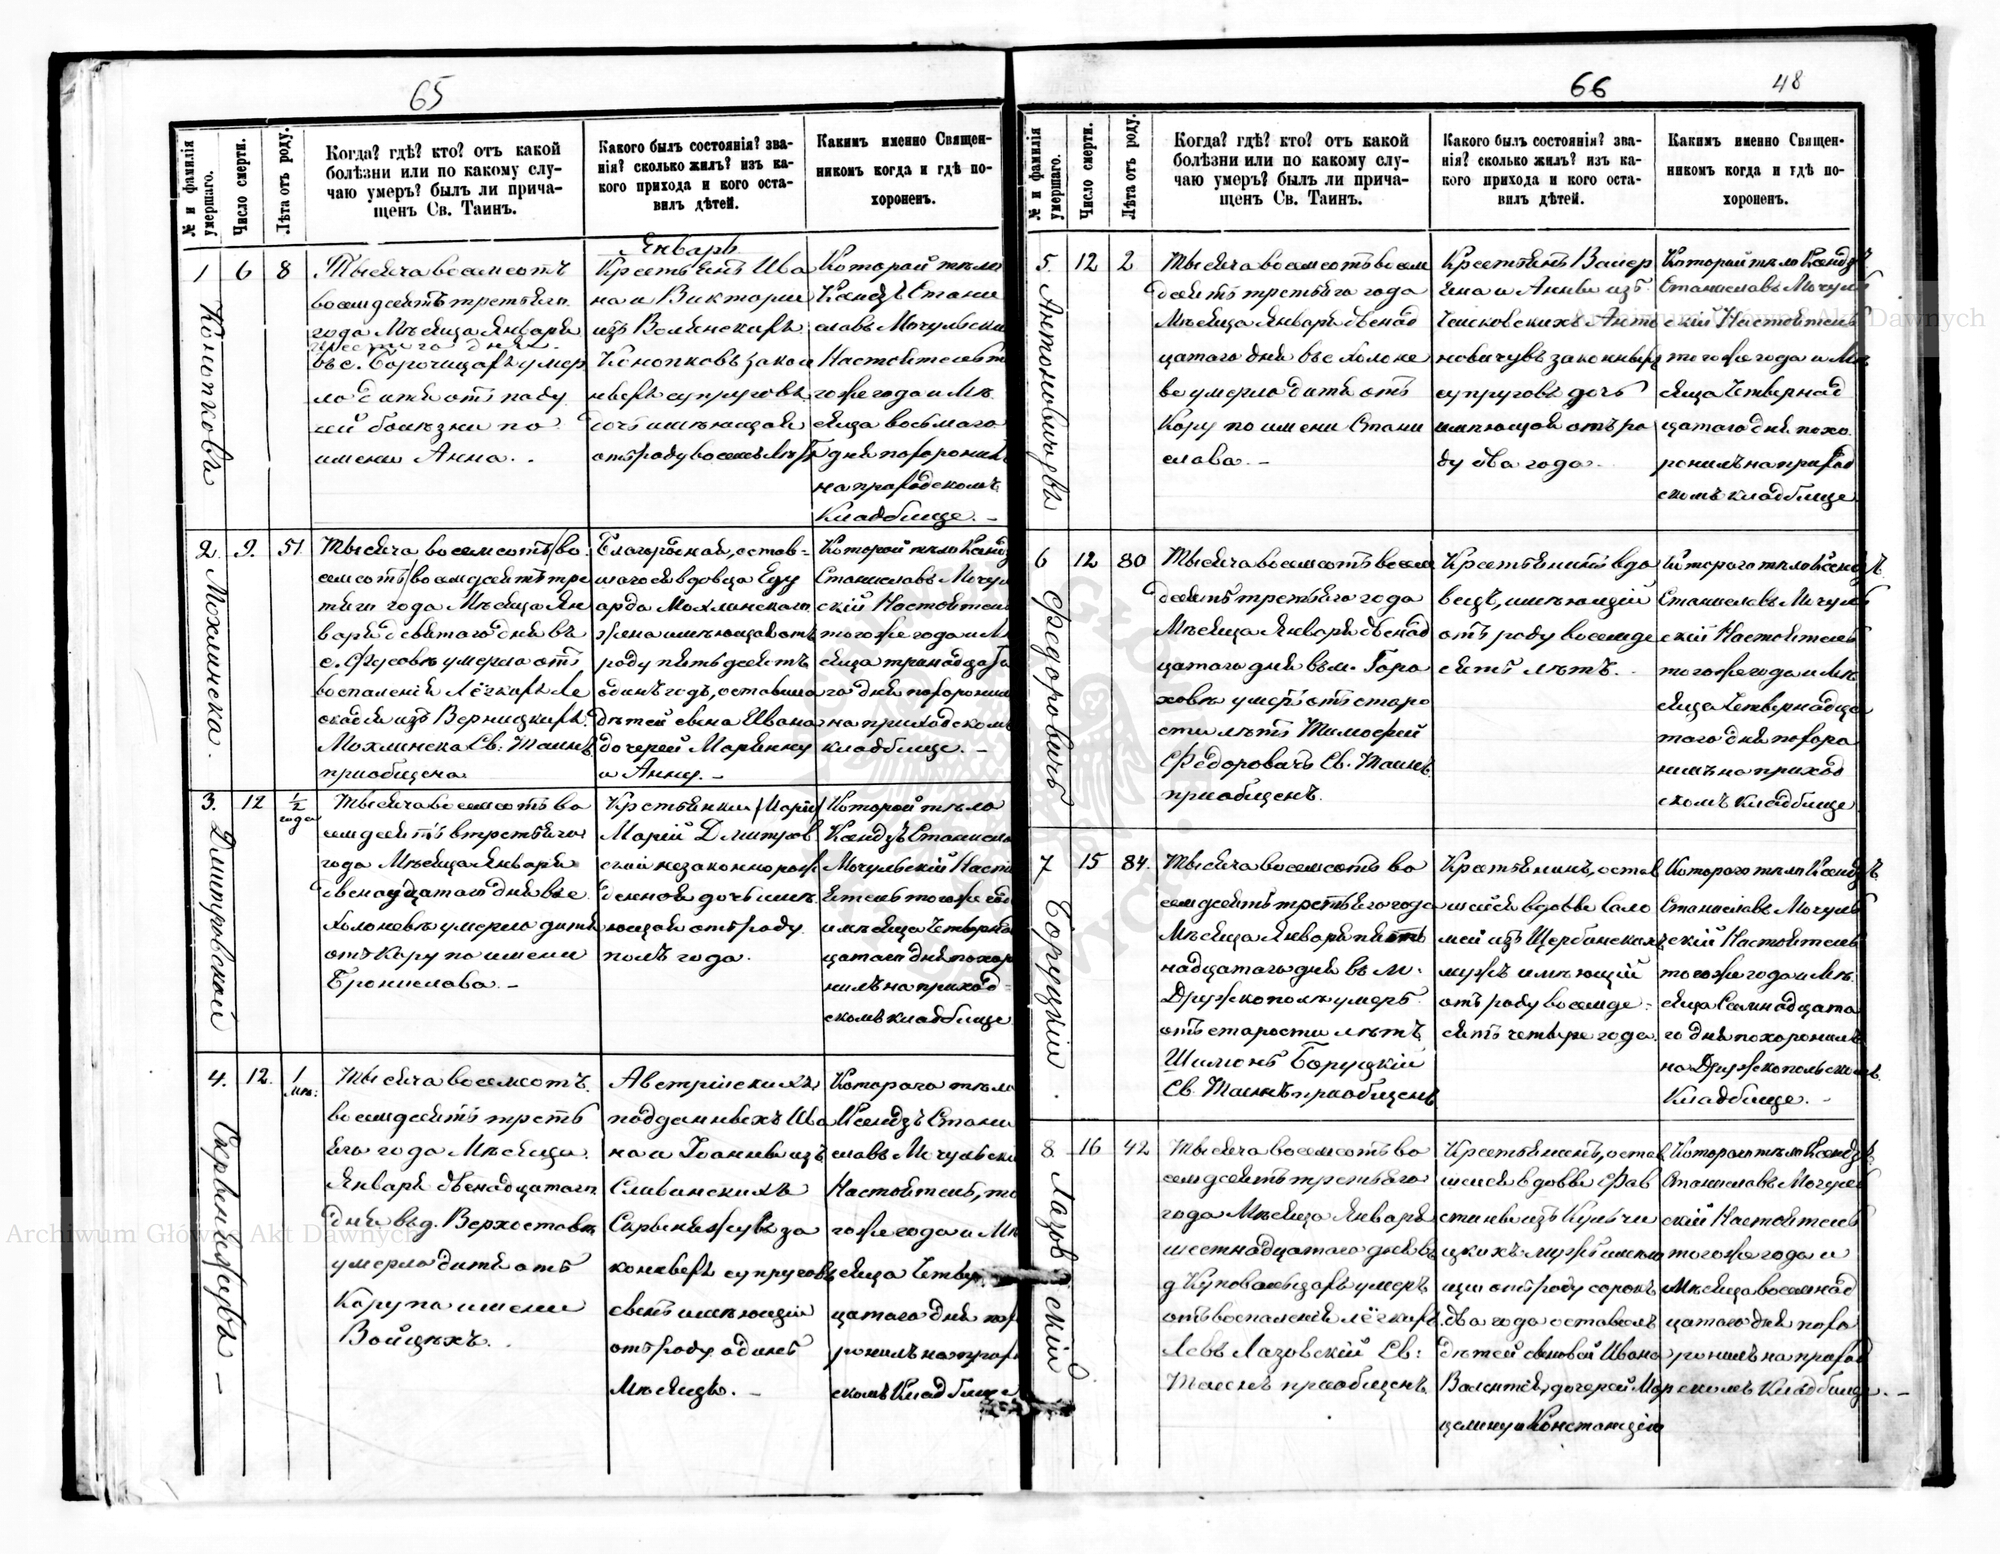 65
№ и фамилія умершаго.
Число смерти.
Лѣта отъ роду.
Когда? гдѣ? кто? отъ какой
болѣзни или по какому слу-
чаю умеръ? былъ ли прича-
щенъ Св. Таинъ.
Какого былъ состоянія? зва-
нія? сколько жилъ? изъ ка-
кого прихода и кого оста-
вилъ дѣтей.
Какимъ именно Священ-
никомъ когда и гдѣ по-
хороненъ.
Январь
1
Конопкова
6
8
Тысяча восемсотъ
восемдесятъ третьяго
года Мѣсяца Января
шестого дня
въ с. Борочицахъ умер
ло дитя отъ паду
чей болѣзни по
имени Анна.
Крестьянъ Ива
на и Викторіи
изъ Волянскихъ
Конопковъ закон
ныхъ супруговъ
дочь имѣющая
отъ роду восемь лѣтъ
Которой тѣло
Ксендзъ Стани
славъ Мочульскій
Настоятель т
гоже года и Мѣ
сяца восьмаго
дня похоронилъ
на приходскомъ
Кладбище. -
2
Мохлинска.
9.
51
Тысяча восемсотъ /во
семсотъ/ восемдесятъ тре
тяго года Мѣсяца Ян
варя девятаго дня въ
с. Фусовѣ умерла отъ
воспаленія Лёгкихъ Ле
окадія изъ Верницкихъ
Мохлинска Св: Таинъ
приобщена
Благородная, остав-
шагося вдовца Еду
арда Мохлинскаго
жена имѣющая отъ
роду пятьдесятъ
одинъ годъ, оставила
дѣтей сына Ивана
дочерей Марянну
и Анну. -
Которой тѣло Ксендз
Станиславъ Мочул
скій Настоятель
тогоже года и М
сяца тринадцата
го дня похоронил
на приходскомъ
кладбище. -
3.
Дмитровской
12
1/2 года
Тысяча восемсотъ во
семдесятъ третьяго
года Мѣсяца Января
двенадцатаго дня въ с
Холоневѣ умерло дитя
отъ Кору по имени
Бронислава. -
Крестьянки /Маріи/
Маріи Дмитров
ской незаконнорож
денной дочь имѣ
ющая отъ роду
полъ года.
Которой тѣло
Ксендзъ Станисла
Мочульскій Насто
ятель тогоже год
и мѣсяца Четырна
цатаго дня похор
нилъ на приход
скомъ кладбище
4.
Скрыниковъ -
12.
1 мѣс:
Тысяча восемсотъ
восемдесятъ треть
яго года Мѣсяца
Января двенадцатаго
дня въ д. Верхоставѣ
умерло дитя отъ
Кору по имени
Войцѣхъ.
Австрійскихъ
подданныхъ Ива
на и Іоанны изъ
Сливинскихъ
за
конныхъ супруговъ
сынъ имѣющій
отъ роду одинъ
Мѣсяцъ. -
Котораго тѣло
Ксендзъ Стани
славъ Мочульски
Настоятель, то
гоже года и Мѣ
сяца Четыр
цатаго дня пох
ронилъ на прих
скомъ Кладбище
66
48
№ и фамилія умершаго.
Число смерти.
Лѣта отъ роду.
Когда? гдѣ? кто? отъ какой
болѣзни или по какому слу-
чаю умеръ? былъ ли прича-
щенъ Св. Таинъ.
Какого былъ состоянія? зва-
нія? сколько жилъ? изъ ка-
кого прихода и кого оста-
вилъ дѣтей.
Какимъ именно Священ-
никомъ когда и гдѣ по-
хороненъ.
5.
Антоновичова
12
2
Тысяча восемсотъ восем
десятъ третьяго года
Мѣсяца Января двенад
цатаго дня въ с Холоне
ве умерло дитя отъ
Кору по имени Стани
слава. -
Крестьянъ
и Анны изъ
Анто
новичувъ законныхъ
супруговъ дочь
имѣющая отъ ро
ду два года.
Которой тѣло Ксендзъ
Станиславъ Мочуль
скій Настоятель
тогоже года и Мѣ
сяца Четырнад
цатаго дня похо
ронилъ на приход
скомъ кладбище
6
Федоровичъ
12
80
Тысяча восемсотъ восем
десятъ третьяго года
Мѣсяца Января двенад
цатаго дня въ м. Горо
ховѣ умеръ отъ старо
сти лѣтъ Тимофей
Федоровичъ Св. Таинъ
приобщенъ.
Крестьянинъ вдо
вецъ, имѣющій
отъ роду восемде
сятъ лѣтъ.
Котораго тѣло Ксендзъ
Станиславъ Мочуль
скій Настоятель
тогоже года и Мѣ
сяца Четырнадца
таго дня похоро
нилъ на приход
скомъ кладбище
7
Боруцкій.
15
84.
Тысяча восемсотъ во
семдесятъ третьяго года
Мѣсяца Января пят
надцатаго дня в м.
Дружкополѣ умеръ
отъ старости лѣтъ
Шимонъ Боруцкій
Св. Таинъ приобщенъ
Крестьянинъ, остав
шейся вдовы Сало
меи изъ Щербанскихъ
мужъ имѣющій
отъ роду восемде-
сятъ четыре года.
Котораго тѣло Ксендзъ
Станиславъ Мочуль
скій Настоятель
тогоже года и Мѣ
сяца Семнадцата
го дня похоронилъ
на Дружкопольскомъ
Кладбище. -
8
Лазовскій
16
42
Тысяча восемсотъ во
семдесятъ третьяго
года Мѣсяца Января
шестнадцатаго дня в
д умеръ
отъ воспаленія лёгкихъ
Левъ Лазовскій Св:
Таинъ приобщенъ
Крестьянинъ, остав
шейся вдовы
изъ Кульчи
цкихъ мужъ имѣю
щій отъ роду сорокъ
два года оставилъ
дѣтей сыновей Ивана
Валентія, дочерей Мар
целину и Констанцію
Котораго тѣло Ксендзъ
Станиславъ Мочуль
скій Настоятель
тогоже года и
Мѣсяца восемнад
цатаго дня похо
ронилъ на приход
скомъ Кладбище. -
Archiwum Główne Akt Dawnych
Archiwum Główne Akt Dawnych